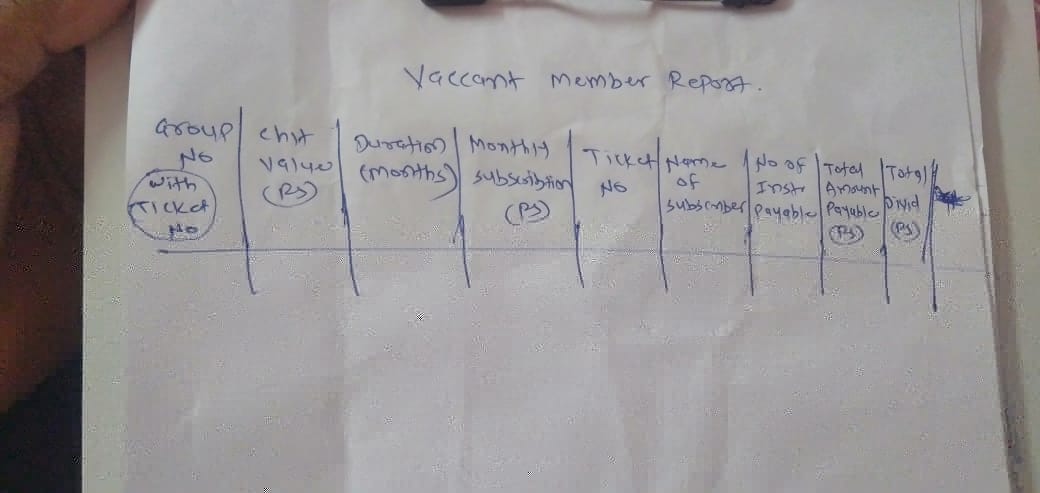 Vaccant Member Report.
Group No With Ticket No
Chit Value (Rs)
Duration (months)
Monthly subscribtion (Rs)
Ticket No
Name of subscriber
No of Instr Payable
Total Amount Payable (Rs)
Total Divid (Rs)